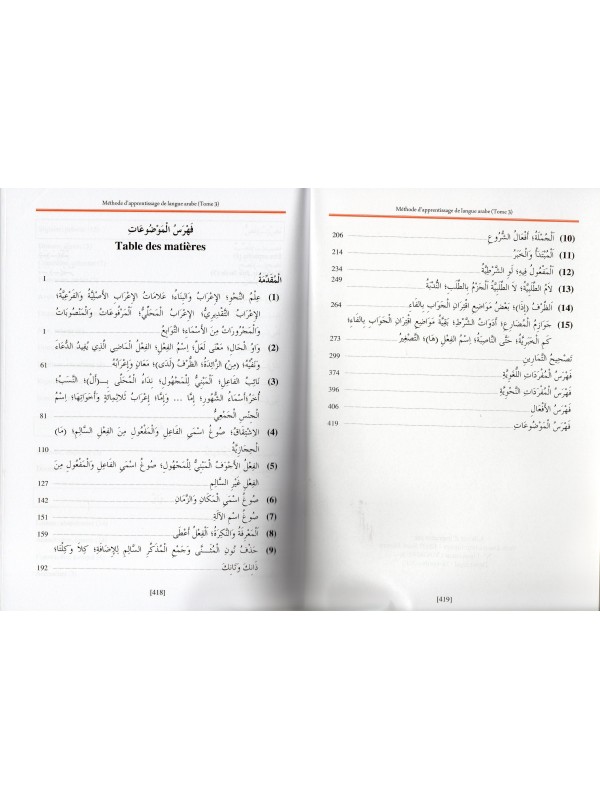 Méthode d'apprentissage de langue arabe (Tome 3)
فَهْرَسُ الْمَوْضُوعَاتِ
Table des matières
الْمُقَدِّمَةُ 1
(1) عِلْمُ النَّحْوِ؛ الإِعْرَابُ وَالبِنَاءُ؛ عَلَامَاتُ الإِعْرَابِ الأَصْلِيَّةُ وَالفَرْعِيَّةُ؛
الإِعْرَابُ التَّقْدِيرِيُّ؛ الإِعْرَابُ الْمَحَلِّيُّ؛ اَلْمَرْفُوعَاتُ وَالْمَنْصُوبَاتُ
وَالْمَجْرُورَاتُ مِنَ الأَسْمَاءِ؛ التَّوَابِعُ 1
(2) وَاوُ الْحَالِ؛ مَعْنَى لَعَلَّ؛ اِسْمُ الفِعْلِ؛ الفِعْلُ الْمَاضِي الَّذِي يُفِيدُ الدُّعَاءَ
وَنَفْيُهُ؛ (مِنْ) الزَّائِدَةُ؛ الظَّرْفُ (لَدَى)؛ مَعَانٍ وَإِعْرَابُهُ 61
(3) نَائِبُ الفَاعِلِ؛ اَلْمَبْنِيُّ لِلْمَجْهُولِ؛ نِدَاءُ الْمُحَلَّى بِـ(أَلْ)؛ النَّسَبُ؛
أُخَرُ؛ أَسْمَاءُ الشُّهُورِ؛ إِمَّا ... وَإِمَّا؛ إِعْرَابُ ثَلَاثِمِائَةٍ وَأَخَوَاتِهَا؛ اِسْمُ
الْجِنْسِ الْجَمْعِيُّ 81
(4) الاِشْتِقَاقُ؛ صَوْغُ اسْمَيِ الفَاعِلِ وَالْمَفْعُولِ مِنَ الفِعْلِ السَّالِمِ؛ (مَا)
الْحِجَازِيَّةُ 110
(5) الفِعْلُ الأَجْوَفُ الْمَبْنِيُّ لِلْمَجْهُولِ؛ صَوْغُ اسْمَيِ الفَاعِلِ وَالْمَفْعُولِ مِنَ
الفِعْلِ غَيْرِ السَّالِمِ 127
(6) صَوْغُ اسْمَيِ الْمَكَانِ وَالزَّمَانِ 142
(7) صَوْغُ اسْمِ الآلَةِ 151
(8) اَلْمَعْرِفَةُ وَالنَّكِرَةُ؛ اَلْفِعْلُ أَعْطَى 159
(9) حَذْفُ نُونِ الْمُثَنَّى وَجَمْعِ الْمُذَكَّرِ السَّالِمِ لِلإِضَافَةِ؛ كِلَا وَكِلْتَا؛
ذَانِكَ وَتَانِكَ 192
[418]
Méthode d'apprentissage de langue arabe (Tome 3)
(10) اَلْجُمْلَةُ؛ أَفْعَالُ الشُّرُوعِ 206
(11) اَلْمُبْتَدَأُ وَالْخَبَرُ 214
(12) اَلْمَفْعُولُ فِيهِ؛ لَوِ الشَّرْطِيَّةُ 234
(13) لَامُ الطَّلَبِيَّةُ؛ لَا الطَّلَبِيَّةُ اَلْجَزْمُ بِالطَّلَبِ؛ النُّدْبَةُ 249
(14) الظَّرْفُ (إِذَا)؛ بَعْضُ مَوَاضِيعِ اقْتِرَانِ الْجَوَابِ بِالفَاءِ 264
(15) جَوَازِمُ الْمُضَارِعِ؛ أَدَوَاتُ الشَّرْطِ؛ بَقِيَّةُ مَوَاضِيعِ اقْتِرَانِ الْجَوَابِ بِالفَاءِ؛
كَمِ الْخَبَرِيَّةُ؛ حَتَّى النَّاصِبَةُ؛ اِسْمُ الفِعْلِ (هَا)؛ التَّصْغِيرُ 273
تَصْحِيحُ التَّمَارِينِ 299
فَهْرَسُ الْمُفْرَدَاتِ اللُّغَوِيَّةِ 374
فَهْرَسُ الْمُفْرَدَاتِ النَّحْوِيَّةِ 396
فَهْرَسُ الأَفْعَالِ 406
فَهْرَسُ الْمَوْضُوعَاتِ 419
[419]